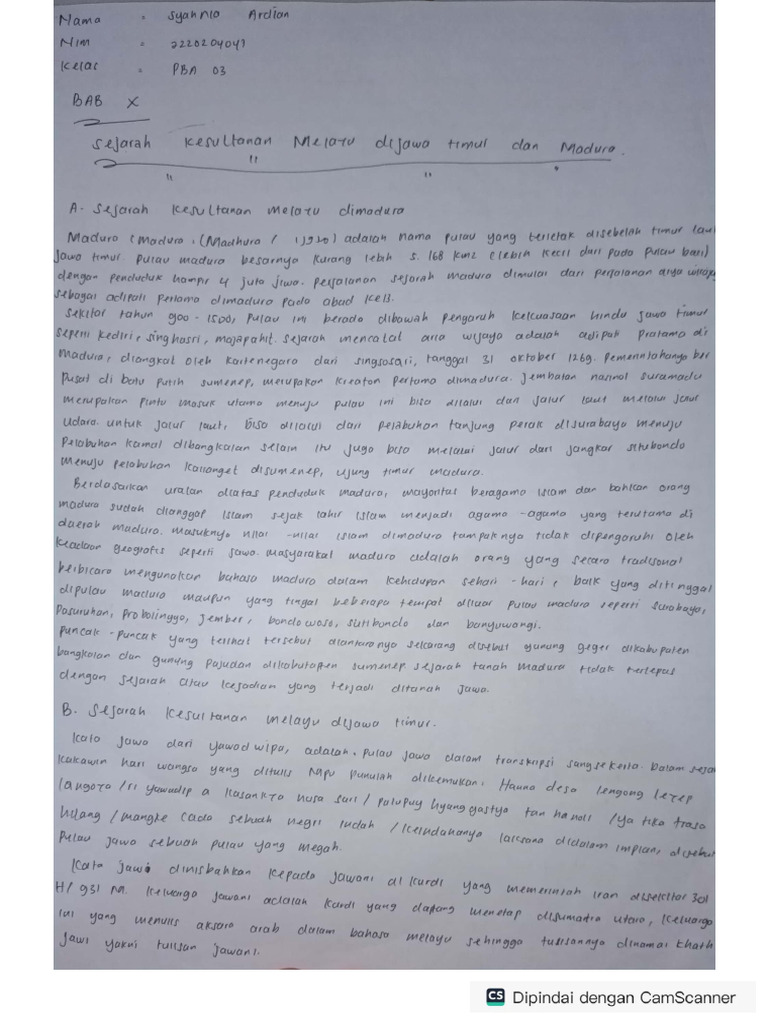 Nama : Syahnia Ardian
Nim : 2220204047
Kelas : PBA 03
BAB X
Sejarah Kesultanan Melayu dijawa timur dan Madura.
A. Sejarah Kesultanan melayu dimadura
Madura (madura, (Madhura / ) adalah nama pulau yang terletak disebelah timur laut
jawa timur. pulau madura besarnya kurang lebih 5.168 km2 (lebih kecil dari pada pulau bali)
dengan penduduk hampir 4 juta jiwa. perjalanan sejarah madura dimulai dari perjalanan arya
sebagai adipati pertama dimadura pada abad ke13.
Sekitar tahun 900-1500, pulau ini berada dibawah pengaruh kekuasaan hindu jawa timur
seperti kediri, singhasri, majapahit. sejarah mencatat aria wijaya adalah adipati pratama di
madura, diangkat oleh kartenegara dari singosari, tanggal 31 oktober 1269. pemerintahanya ber
pusat di batu putih sumenep, merupakan kreaton pertama dimadura. jembatan nasinol suramadu
merupakan pintu masuk utama menuju pulau ini bisa dilalui dari jalur laut melalui jalur
udara. untuk jalur laut, bisa dilalui dari pelabuhan tanjung perak disurabaya menuju
pelabuhan kamal dibangkalan selain itu juga bisa melalui jalur dari jangkar situbondo
menuju pelabuhan kalianget disumenep, ujung timur madura.
Berdasarkan uraian diatas penduduk madura, mayoritas beragama islam dan bahkan orang
madura sudah dianggap islam sejak lahir islam menjadi agama-agama yang terutama di
daerah madura. masuknya nilai-nilai islam dimadura tampaknya tidak dipengaruhi oleh
keadaan geografis seperti jawa. masyarakat madura adalah orang yang secara tradisonal
berbicara mengunakan bahasa madura dalam kehidupan sehari-hari, baik yang ditinggal
dipulau madura maupun yang tingal beberapa tempat diluar pulau madura seperti surabaya,
Pasuruhan, Probolinggo, jember, bondowoso, sutibundo dan banyuwangi.
puncak-puncak yang terlihat tersebut diantaranya sekarang disebut gunung geger dikabupaten
bangkalan dan gunung pajudan dikabutapen sumenep sejarah tanah Madura tidak terlepas
dengan sejarah atau kejadian yang terjadi ditanah jawa.
B. Sejarah Kesultanan melayu dijawa timur.
Kata jawa dari yawadwipa, adalah. pulau jawa dalam transkripsi sangsekerta. Dalam
kakawin hari wangsa yang ditulis mpu panulah dikemukan: Hauna desa lengong
langora /ri yawadip a kasankya nusa suri / palupuy hyang gastyo tan hanoli /ya tika
hilang / mangke sebuah negri indah /keindahanya laksana didalam impian, disebut
Pulau jawa sebuah pulau yang megah.
Kata jawi dinisbahkan kepada jawani al kurdi yang memerintah iran disekitar 301
H/ 931 M. keluarga jawani adalah kurdi yang datang menetap disumatra utara, keluarga
ini yang menulis aksara arab dalam bahasa melayu sehingga tulisannya dinamai khath
jawi yakni tulisan jawani.
CS Dipindai dengan CamScanner